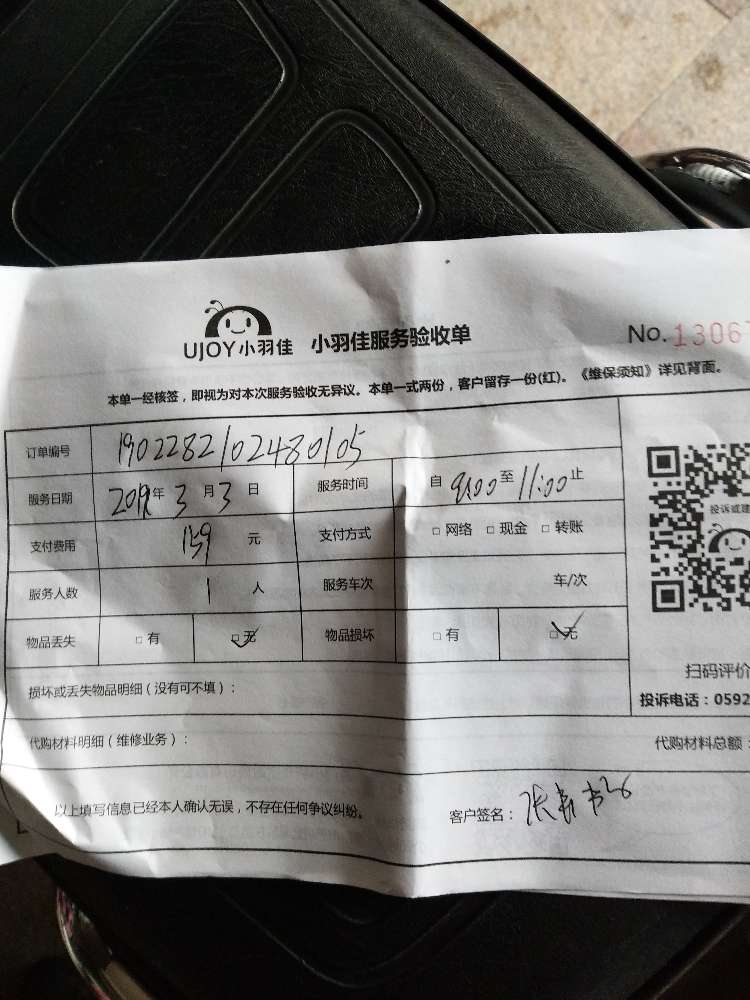 UJOY小羽佳 小羽佳服务验收单 No.1306
本单一经核签，即视为对本次服务验收无异议。本单一式两份，客户留存一份(红)。《维保须知》详见背面。
订单编号 1902282102480105
服务日期 2019年3月3日 服务时间 自9:00至11:00止
支付费用 159元 支付方式 □网络 □现金 □转账
服务人数 1人 服务车次 车/次
物品丢失 □有 □无 物品损坏 □有 □无
投诉或建
扫码评价
损坏或丢失物品明细（没有可不填）：
投诉电话：0592
代购材料明细（维修业务）： 代购材料总额：
以上填写信息已经本人确认无误，不存在任何争议纠纷。 客户签名：